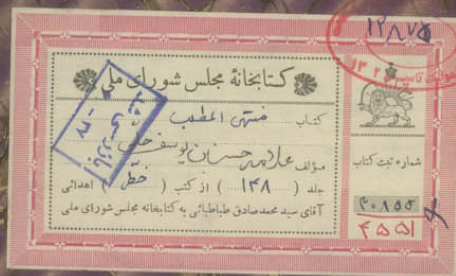 ۱۲۸۷۵
کتابخانهٔ مجلس شورای ملی
کتاب منتهی المطلب
مؤلف علامه حسن بن یوسف حلی
جلد ( ۱۴۸ ) از کتب ( خطی ) اهدائی
آقای سید محمدصادق طباطبائی به کتابخانه مجلس شورای ملی
بازرسی شد
۳۷ -
شماره ثبت کتاب
۲۰۸۵۵
۴۵۵۱